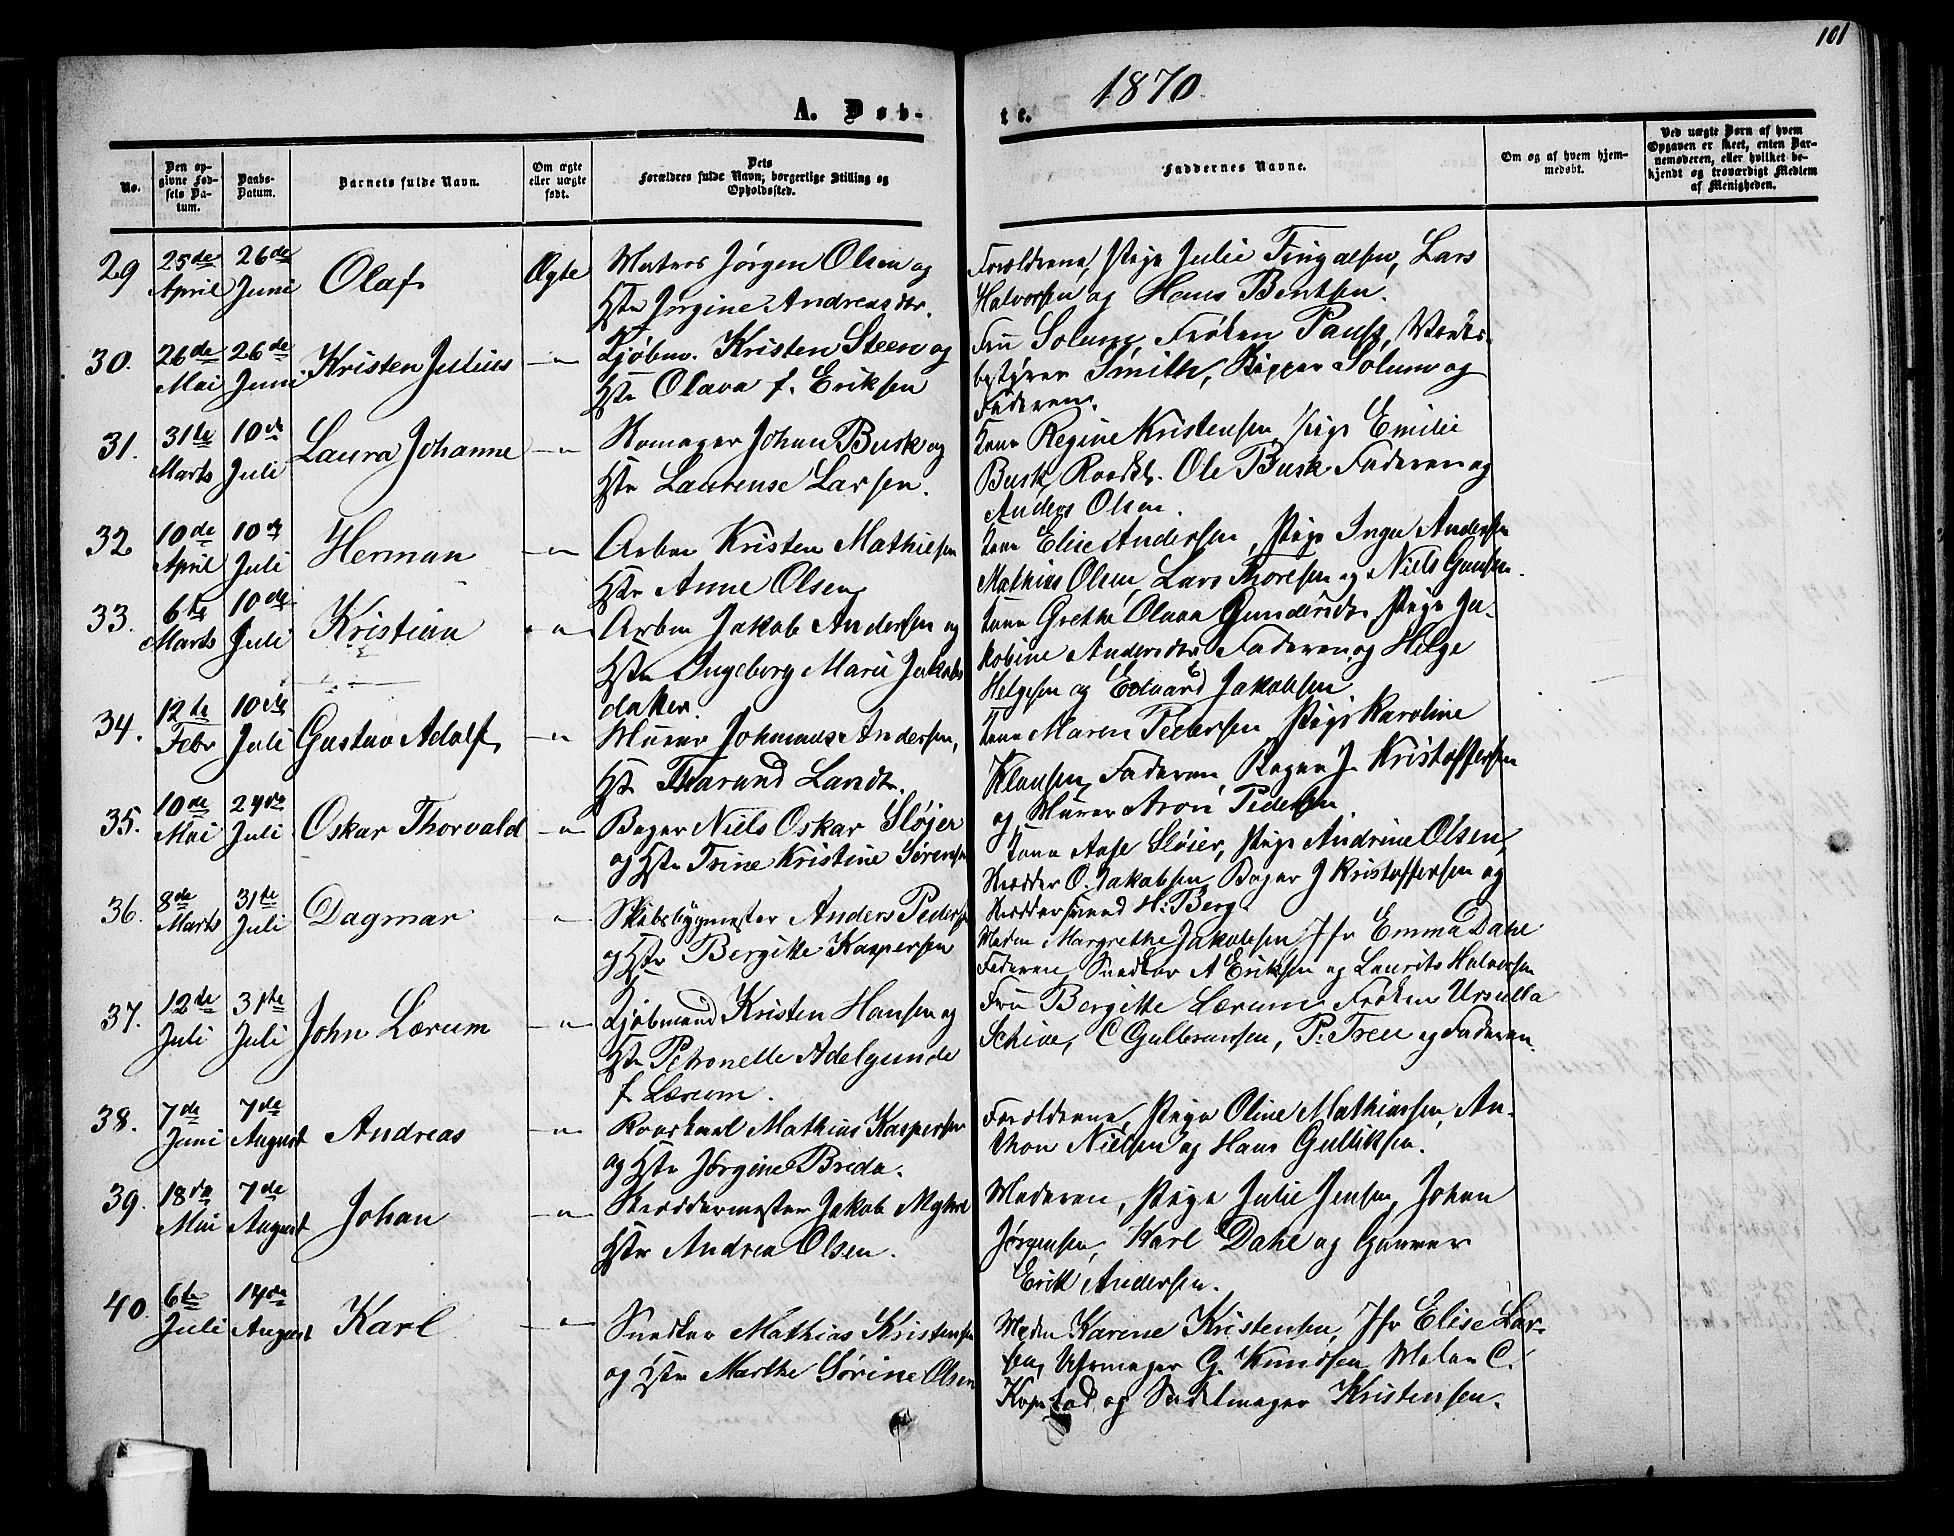 101
1870
A. Døb-
te.
No.
Den opgivne Fødsels Datum.
Daabs-Datum.
Barnets fulde Navn.
Om ægte eller uægte født.
Dets Forældres fulde Navn, borgerlige Stilling og Opholdssted.
Faddernes Navne.
Om og af hvem hjemmedøbt.
Ved uægte Børn af hvem Opgaven er skeet, enten Barnemoderen, eller hvilket bekjendt og troværdigt Medlem af Menigheden.
29 25de April 26de Juni Olaf Ægte Matros Jørgen Olsen og
Hstr Jørgine Andreasdtr.
Forældrene, Pige Julie Fingalsen, Lars
Halvorsen og Hans Bentsen.
30. 26de Mai 26de Juni Kristen Julius — " — Kjøbm. Kristen Steen og
Hstr Olava f. Eriksen
Fru Solum, Frøken Paus, Værks-
bestyrer Smith, Skipper Solum og
Faderen.
31. 31te Marts 10de Juli Laura Johanne — " — Skomager Johan Busk og
Hstr Laurense Larsen.
Kone Regine Kristensen, Pige Emilie
Busk, Ole Busk Faderen og
Anders Olsen.
32 10de April 10de Juli Herman — " — Arbm Kristen Mathisen
Hstr Anne Olsen
Kone Elise Andersen, Pige Inga Andersen
Mathias Olsen, Lars Thoresen og Niels Hansen.
33. 6te Marts 10de Juli Kristian — " — Arbm Jakob Andersen og
Hstr Ingeborg Marie Jakobs
datter.
Kone Grethe Olava Gundersdtr, Pige Ja-
kobine Andersdtr Faderen og Helge
Helgesen og Edvard Jakobsen.
34. 12te Febr 10de Juli Gustav Adolf — " — Murer Johannes Andersen,
Hstr Tharand Landt.
Kone Maren Pedersen, Pige Karoline
Klausen, Faderen, Bager J. Kristoffersen
og Murer Aron Pedersen
35. 10de Mai 24de Juli Oskar Thorvald — " — Bager Niels Oskar Sløjer
og Hstr Trine Kristine Sørensen
Kone Aase Sløier, Pige Andrine Olsen,
Skrædder O. Jakobsen, Bager J Kristoffersen og
Skræddersvend H. Berg.
36. 8de Marts 31te Juli Dagmar — " — Skibsbygmester Anders Peders
og Hstr Bergitte Kaspersen
Madm Margrethe Jakobsen Jfr Emma Dahl
Faderen, Snedker A Eriksen og Laurits Halvorsen
37. 12te Juli 31te Juli John Lærum — " — Kjøbmand Kristen Hansen og
Hstr Petronelle Adelgunde
f. Lærum.
Fru Bergitte Lærum, Frøken Ursulla
Schive, C Gulbransen, P. Treu og Faderen.
38. 7de Juni 7de August Andreas — " — Mathias Kaspersen
og Hstr Jørgine Breda.
Forældrene, Pige Oline Mathiassen, An-
thon Nielsen og Hans Gulliksen.
39. 18de Mai 7de August Johan — " — Skræddermester Jakob Myhre
Hstr Andrea Olsen.
Moderen, Pige Julie Jensen, Johan
Jørgensen, Karl Dahl og Garver
Erik Andersen.
40 6te Juli 14de August Karl — " — Snedker Mathias Kristensen
og Hstr Marthe Sørine Olsen
Madm Karene Kristensen, Jfr Elise Lar-
sen, Uhrmager G. Knudsen, Maler C.
Kopstad og Sadelmager Kristensen.